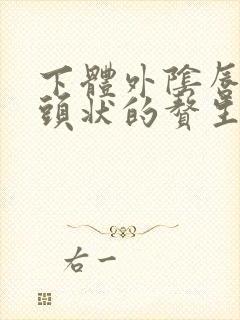 下體外陰唇
頭狀的贅生
右一